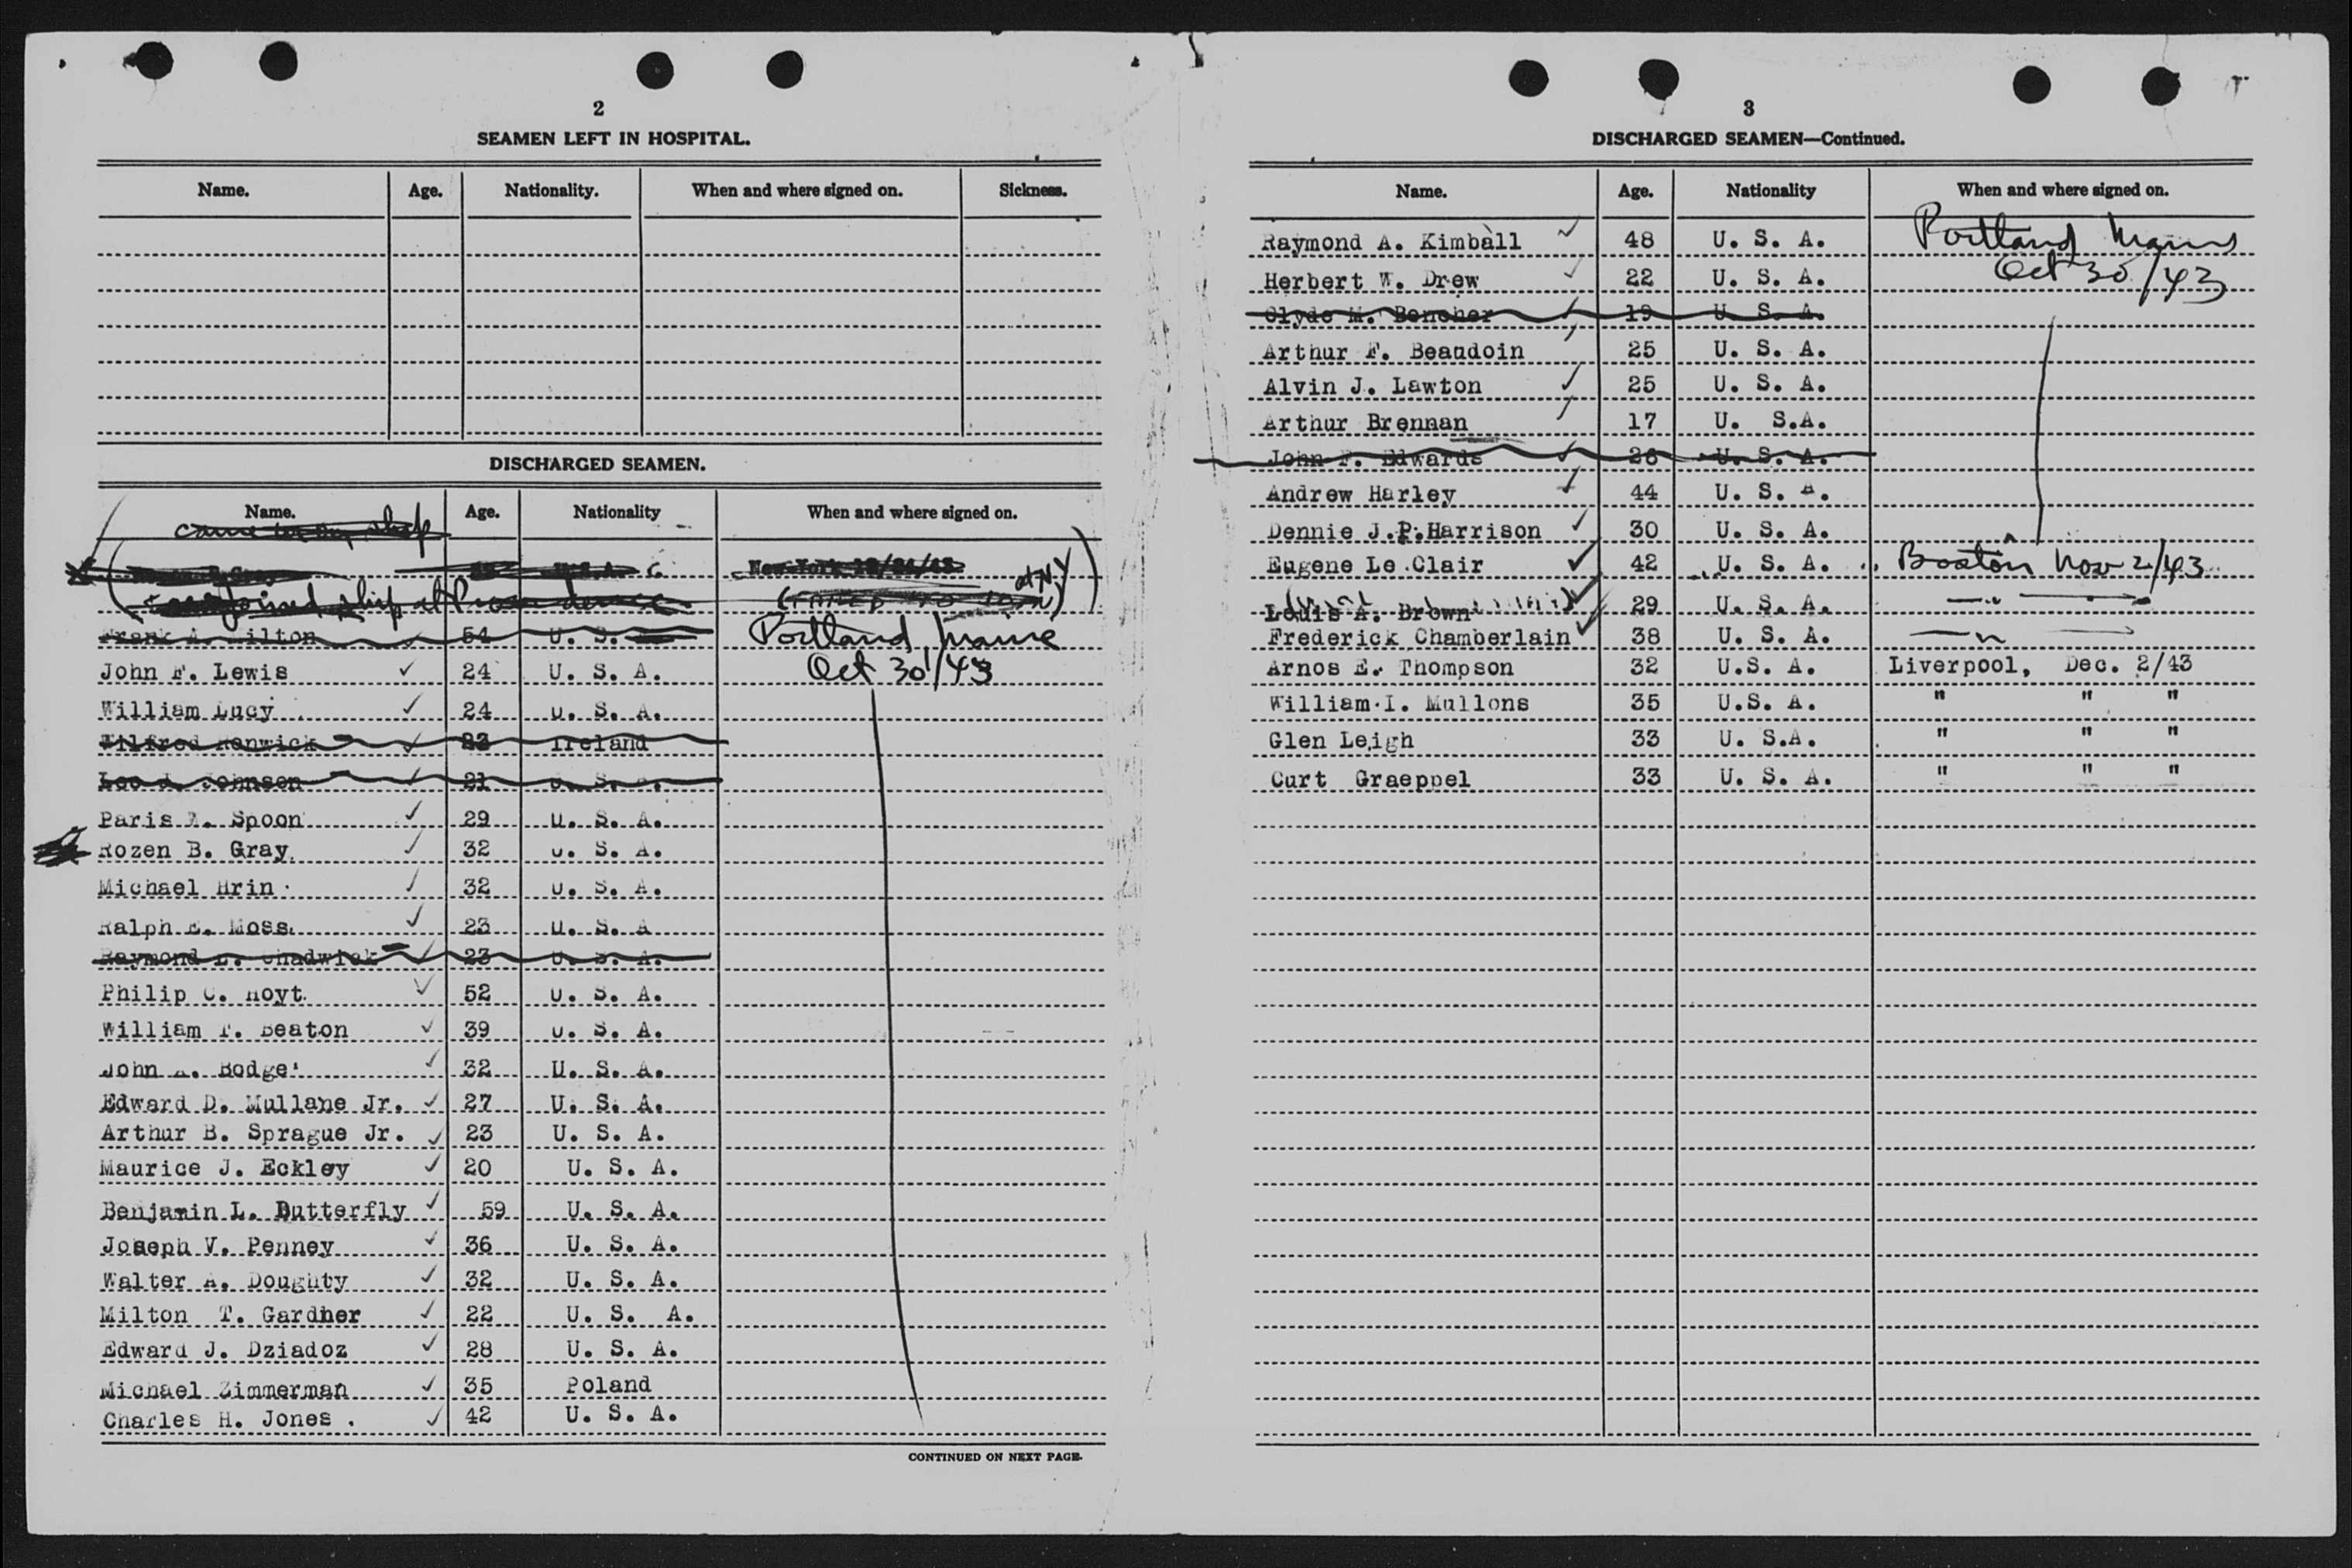 2
SEAMEN LEFT IN HOSPITAL.
Name. Age. Nationality. When and where signed on. Sickness.
DISCHARGED SEAMEN.
Name. Age. Nationality When and where signed on.
came ship
New York
joined ship at Providence
Frank A. Hilton 54 U. S. Portland Maine
John F. Lewis ✓ 24 U. S. A. Oct 30/43
William Lucy ✓ 24 U. S. A.
Wilfred Renwick ✓ 23 Ireland
Leo J. Johnson ✓ 21 U. S. A.
Paris W. Spoon ✓ 29 U. S. A.
Rozen B. Gray ✓ 32 U. S. A.
Michael Hrin ✓ 32 U. S. A.
Ralph E. Moss ✓ 23 U. S. A
Raymond L. Chadwick ✓ 23 U. S. A.
Philip C. Hoyt ✓ 52 U. S. A.
William F. Beaton ✓ 39 U. S. A.
John A. Bodge ✓ 32 U. S. A.
Edward D. Mullane Jr. ✓ 27 U. S. A.
Arthur B. Sprague Jr. ✓ 23 U. S. A.
Maurice J. Eckley ✓ 20 U. S. A.
Benjamin L. Dutterfly ✓ 59 U. S. A.
Joseph V. Penney ✓ 36 U. S. A.
Walter A. Doughty ✓ 32 U. S. A.
Milton T. Gardner ✓ 22 U. S. A.
Edward J. Dziadoz ✓ 28 U. S. A.
Michael Zimmerman ✓ 35 Poland
Charles H. Jones . ✓ 42 U. S. A.
CONTINUED ON NEXT PAGE.
3
DISCHARGED SEAMEN—Continued.
Name. Age. Nationality When and where signed on.
Raymond A. Kimball ✓ 48 U. S. A. Portland Maine
Herbert W. Drew ✓ 22 U. S. A. Oct 30/43
Clyde M. Bencher ✓ 19 U. S. A.
Arthur F. Beaudoin ✓ 25 U. S. A.
Alvin J. Lawton ✓ 25 U. S. A.
Arthur Brennan ✓ 17 U. S.A.
John F. Edwards ✓ 26 U. S. A.
Andrew Harley ✓ 44 U. S. A.
Dennie J.P.Harrison ✓ 30 U. S. A.
Eugene Le Clair ✓ 42 U. S. A. Boston Nov 2/43
Louis A. Brown ✓ 29 U. S. A. — " —
Frederick Chamberlain ✓ 38 U. S. A. — " —
Arnos E. Thompson 32 U.S. A. Liverpool, Dec. 2/43
William I. Mullons 35 U.S. A. " " "
Glen Leigh 33 U. S.A. " " "
Curt Graeppel 33 U. S. A. " " "